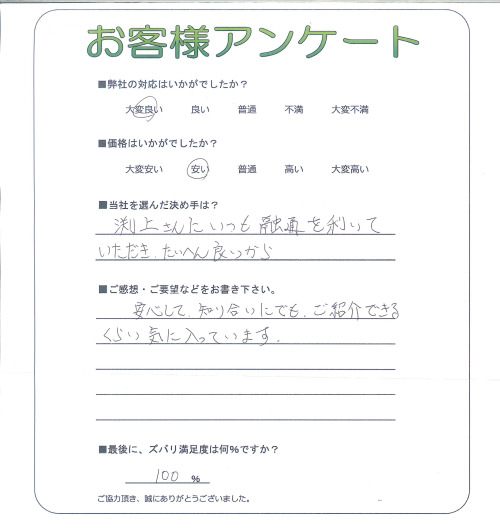 お客様アンケート
■弊社の対応はいかがでしたか？
大変良い 良い 普通 不満 大変不満
■価格はいかがでしたか？
大変安い 安い 普通 高い 大変高い
■当社を選んだ決め手は？
渕上さんにいつも融通を利いて
いただき、たいへん良いから
■ご感想・ご要望などをお書き下さい。
安心して、知り合いにでも、ご紹介できる
くらい気に入っています。
■最後に、ズバリ満足度は何%ですか？
100 %
ご協力頂き、誠にありがとうございました。